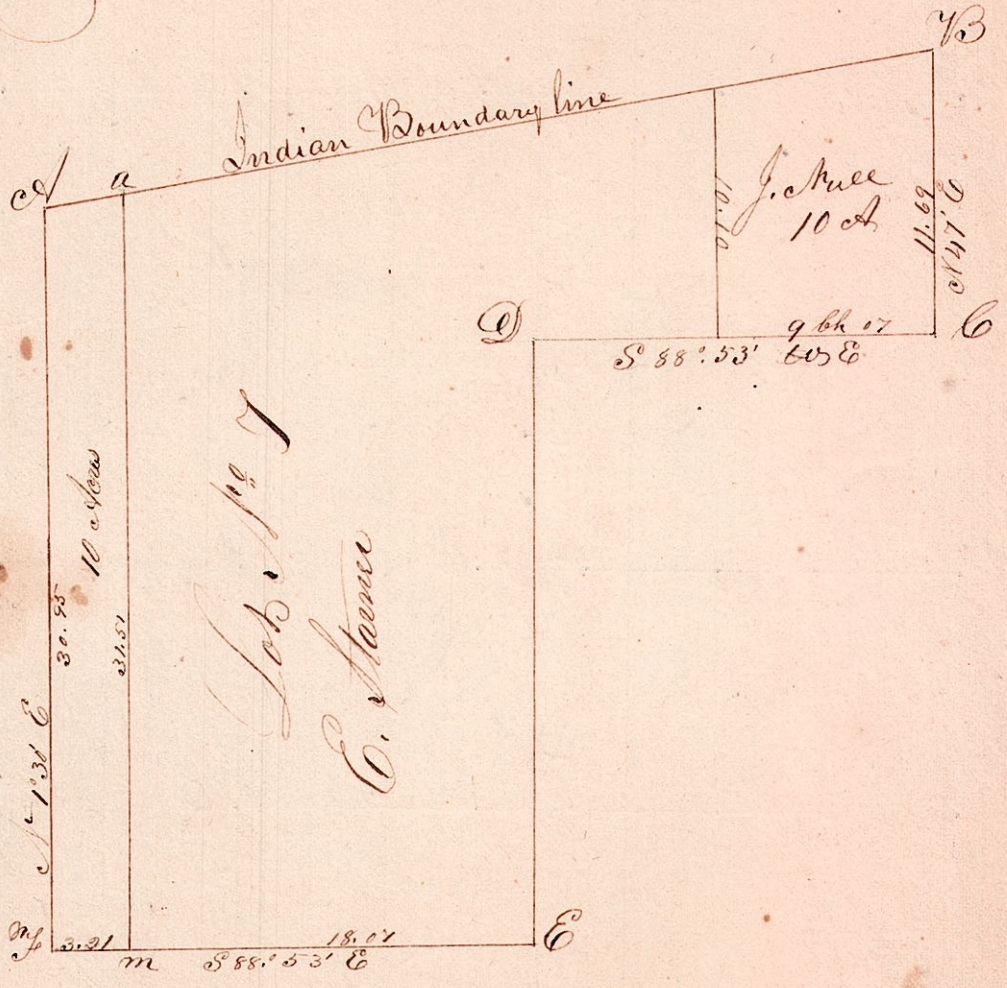 B
Indian Boundary line
A
a
J. Null
10 A
10.10
11.69
N 47' E
D
9 ch 07
C
S 88° 53' E
10 Acres
30.95
31.51
Lot No 7
E. Starner
N 1° 30' E
3.21
18.07
E
m
S 88° 53' E